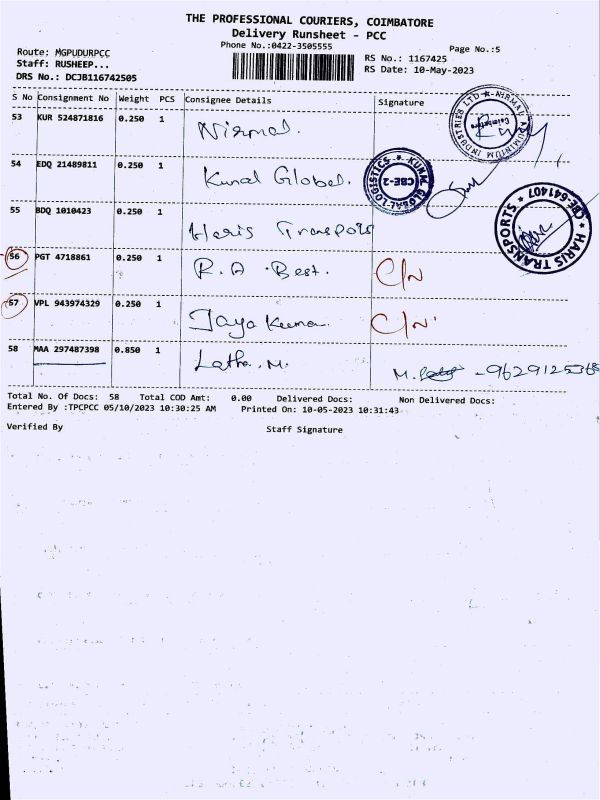 THE PROFESSIONAL COURIERS, COIMBATORE
Delivery Runsheet - PCC
Phone No.:0422-3505555
Page No.:5
Route: MGPUDURPCC
Staff: RUSHEEP...
DRS No.: DCJB116742505
RS No.: 1167425
RS Date: 10-May-2023
S No Consignment No Weight PCS Consignee Details Signature
53 KUR 524871816 0.250 1 Nirmal.
NIRMAL ALUMINIUM INDUSTRIES LTD ★ Coimbatore
54 EDQ 21489811 0.250 1 Kunal Global.
KUNAL GLOBAL LOGISTICS ★ CBE-2
55 BDQ 1010423 0.250 1 Haris Transports
★ HARIS TRANSPORTS ★ CBE-641407
56 PGT 4718861 0.250 1 R.A Best. C/N
57 VPL 943974329 0.250 1 Jaya Kumar C/N
58 MAA 297487398 0.850 1 Latha. M. M. -9629125368
Total No. Of Docs: 58 Total COD Amt: 0.00 Delivered Docs: Non Delivered Docs:
Entered By :TPCPCC 05/10/2023 10:30:25 AM Printed On: 10-05-2023 10:31:43
Verified By Staff Signature